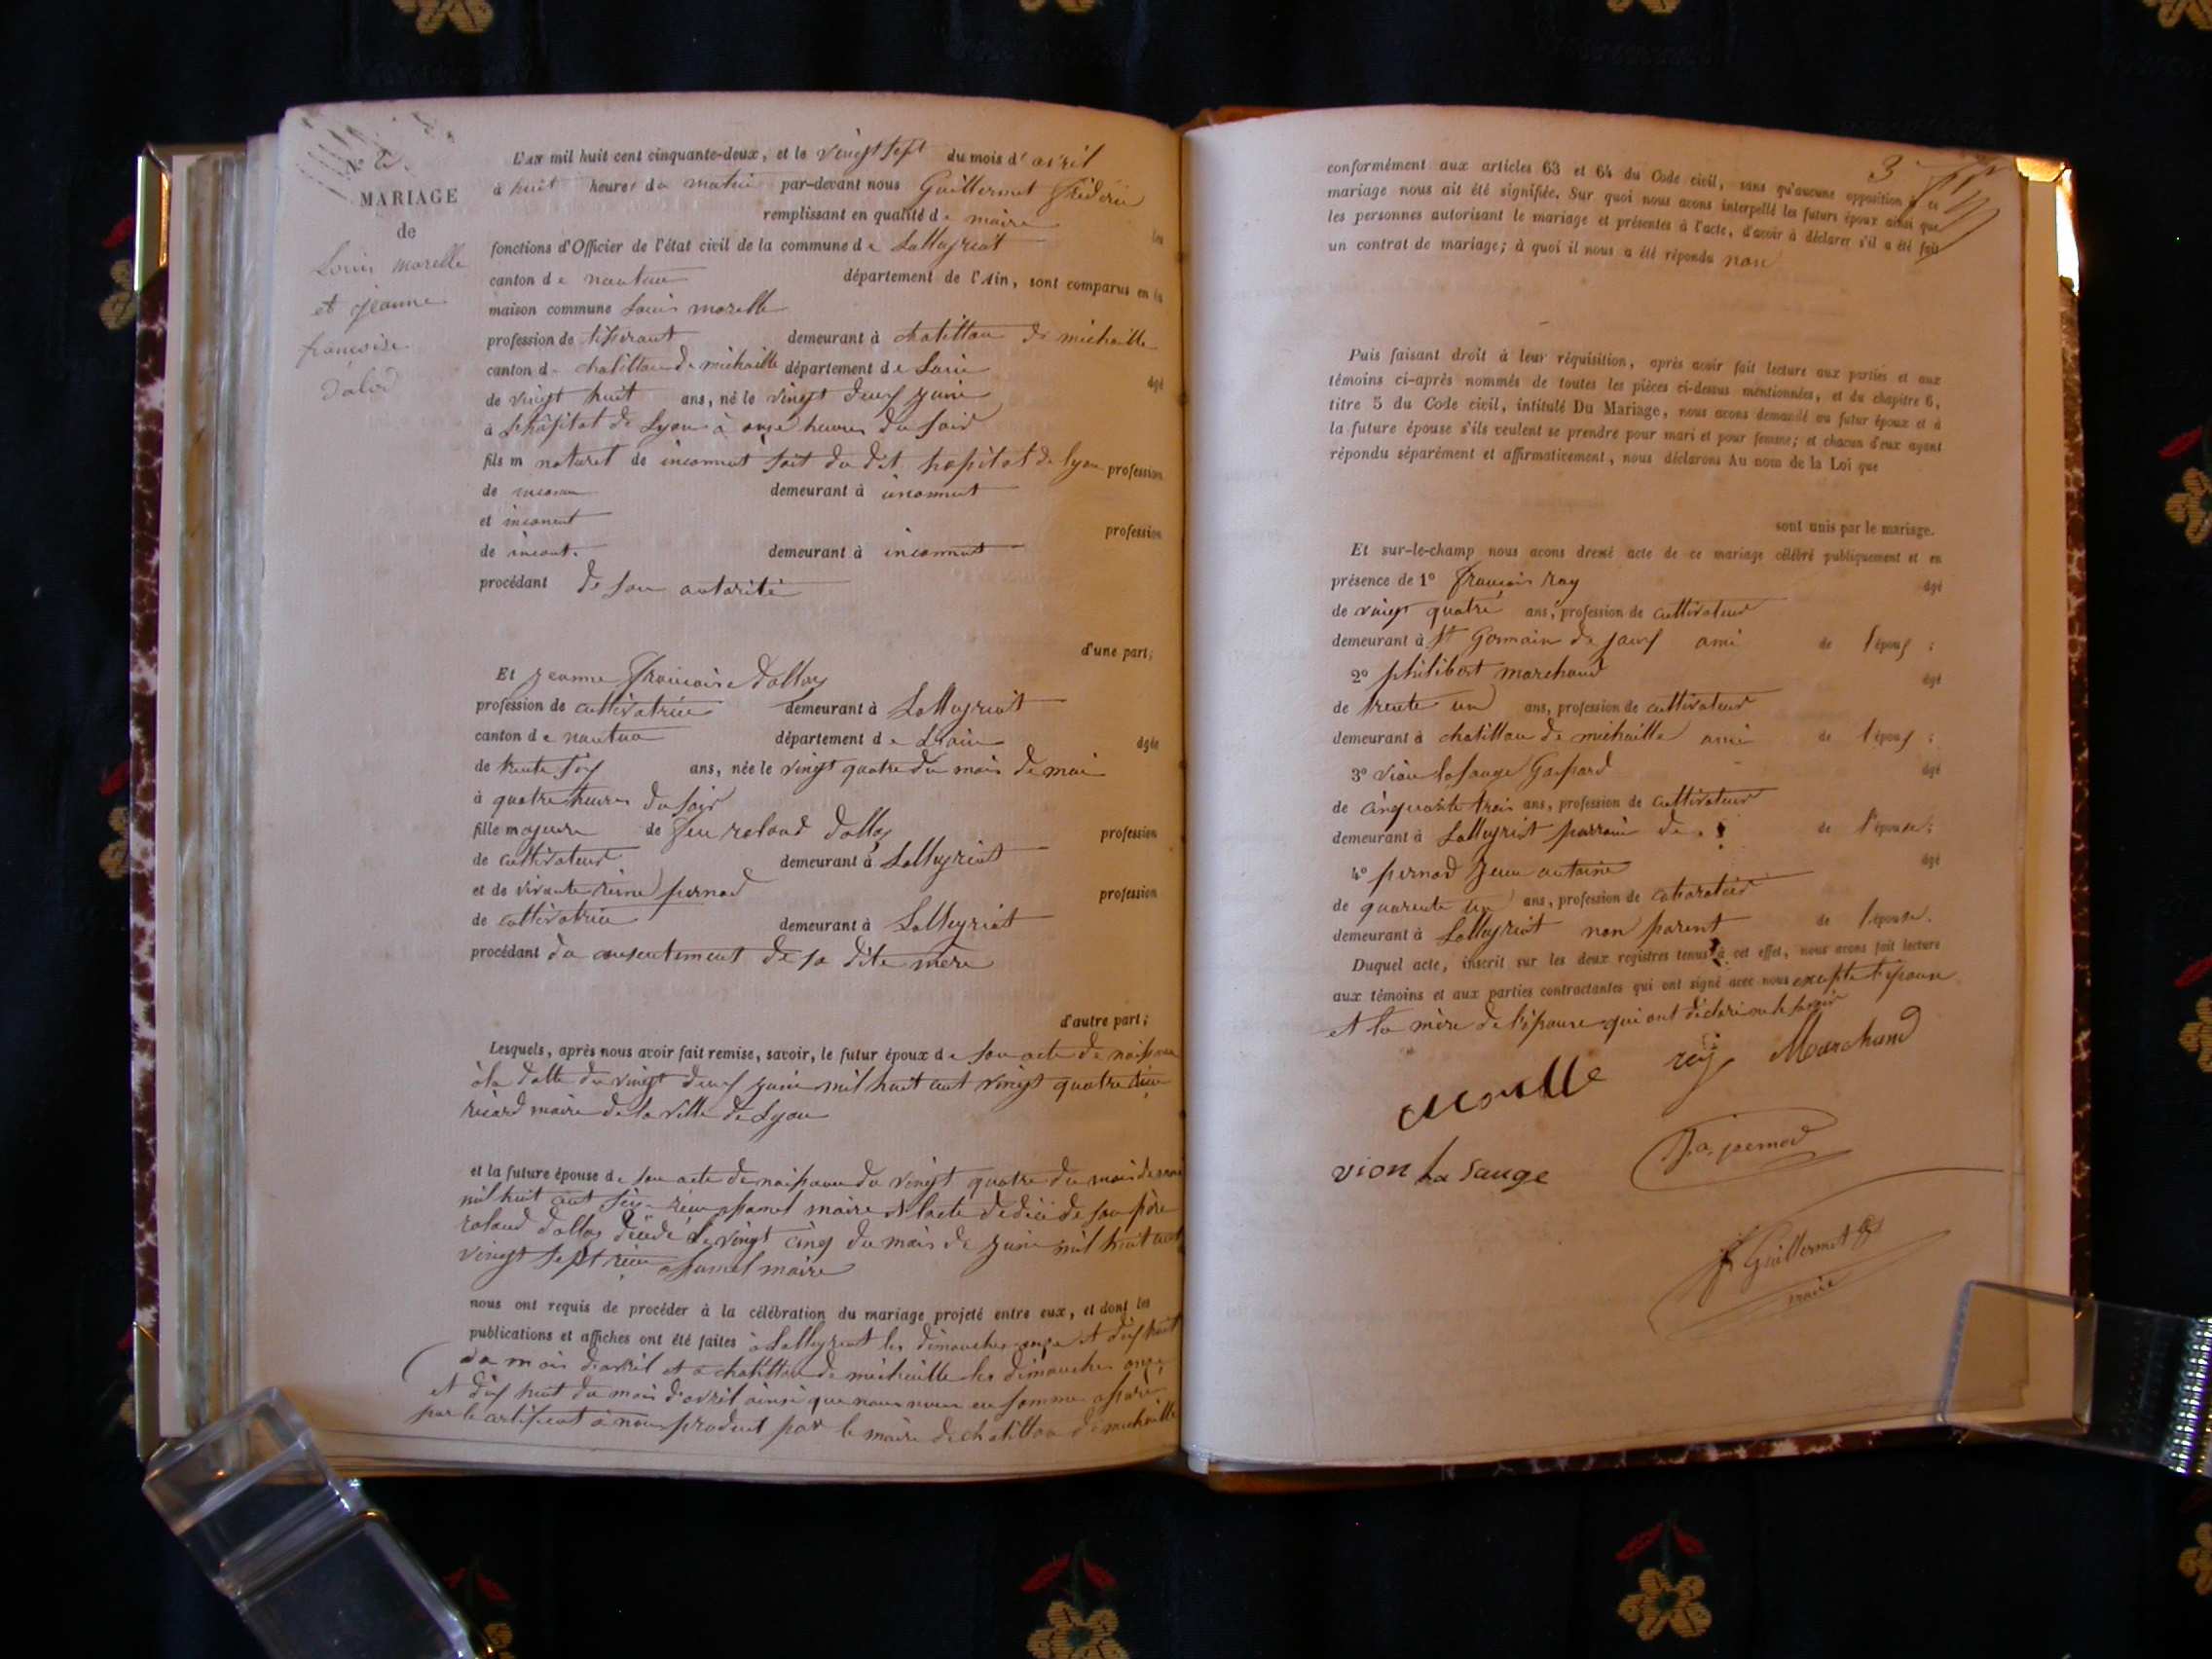 MARIAGE
de
Louis morelle
et jeanne
francoise
L'an mil huit cent cinquante-deux, et le vingt sept du mois d' avril
à huit heures du matin par-devant nous Guillermet frédéric
remplissant en qualité de maire les
fonctions d'Officier de l'état civil de la commune de Lalleyriat
canton de nantua département de l'Ain, sont comparus en la
maison commune Louis morelle
profession de tisserant demeurant à chatillon de michaille
canton d. chatillon de michaille département de Lain
âgé
de vingt huit ans, né le vingt deux juin
à l'hôpital de Lyon à onze heures du soir
fils m naturel de inconnut soit du dit hopital de lyon profession
de demeurant à inconnut
et inconut
profession
de demeurant à inconnut
procédant de son autorité
d'une part;
Et jeanne francoise dalloz
profession de cultivatrice demeurant à Lalleyriat
canton de nantua département de Lain
âgée
de trente six ans, née le vingt quatre du mois de mai
à quatre heures du soir
fille majeure de feu roland dalloz profession
de cultivateur demeurant à Lalleyriat
et de vivante reine pernod profession
de cultivatrice demeurant à Lalleyriat
procédant du consentement de sa dite mère
d'autre part;
Lesquels, après nous avoir fait remise, savoir, le futur époux de son acte de naissance
à la datte du vingt deux juin mil huit cent vingt quatre
maire de la ville de Lyon
et la future épouse de son acte de naissance du vingt quatre du mois de mai
mil huit cent seize maire et lacte de décé de son père
roland dalloz décédé le vingt cinq du mois de juin mil huit cent
vingt sept maire
nous ont requis de procéder à la célébration du mariage projeté entre eux, et dont les
publications et affiches ont été faites à Lalleyriat les dimanches onze et dix huit
du mois d'avril et a chatillon de michaille les dimanches onze
et dix huit du mois d'avril ainsi que nous nous en sommes assuré
par le certificat à nous produit par le maire de chatillon de michaille
3
conformément aux articles 63 et 64 du Code civil, sans qu'aucune opposition à ce
mariage nous ait été signifiée. Sur quoi nous avons interpellé les futurs époux ainsi que
les personnes autorisant le mariage et présentes à l'acte, d'avoir à déclarer s'il a été fait
un contrat de mariage; à quoi il nous a été répondu non
Puis faisant droit à leur réquisition, après avoir fait lecture aux parties et aux
témoins ci-après nommés de toutes les pièces ci-dessus mentionnées, et du chapitre 6,
titre 5 du Code civil, intitulé Du Mariage, nous avons demandé au futur époux et à
la future épouse s'ils veulent se prendre pour mari et pour femme; et chacun d'eux ayant
répondu séparément et affirmativement, nous déclarons Au nom de la Loi que
sont unis par le mariage.
Et sur-le-champ nous avons dressé acte de ce mariage célébré publiquement et en
présence de 1° françois ray âgé
de vingt quatre ans, profession de cultivateur
demeurant à St Germain de joux ami de l'époux ;
2° philibert marchand âgé
de trente un ans, profession de cultivateur
demeurant à chatillon de michaille ami de l'époux ;
3° vion lasauge Gaspard âgé
de cinquante trois ans, profession de cultivateur
demeurant à Lalleyriat parrain de l'épouse;
4° pernod jean antoine âgé
de quarente un ans, profession de
demeurant à Lalleyriat non parent de l'épouse.
Duquel acte, inscrit sur les deux registres tenus à cet effet, nous avons fait lecture
aux témoins et aux parties contractantes qui ont signé avec nous excepté l'épouse
et la mère de l'épouse qui ont déclaré ne le savoir
Morelle ray Marchand
vion La sauge J a pernod
F Guillermet
maire